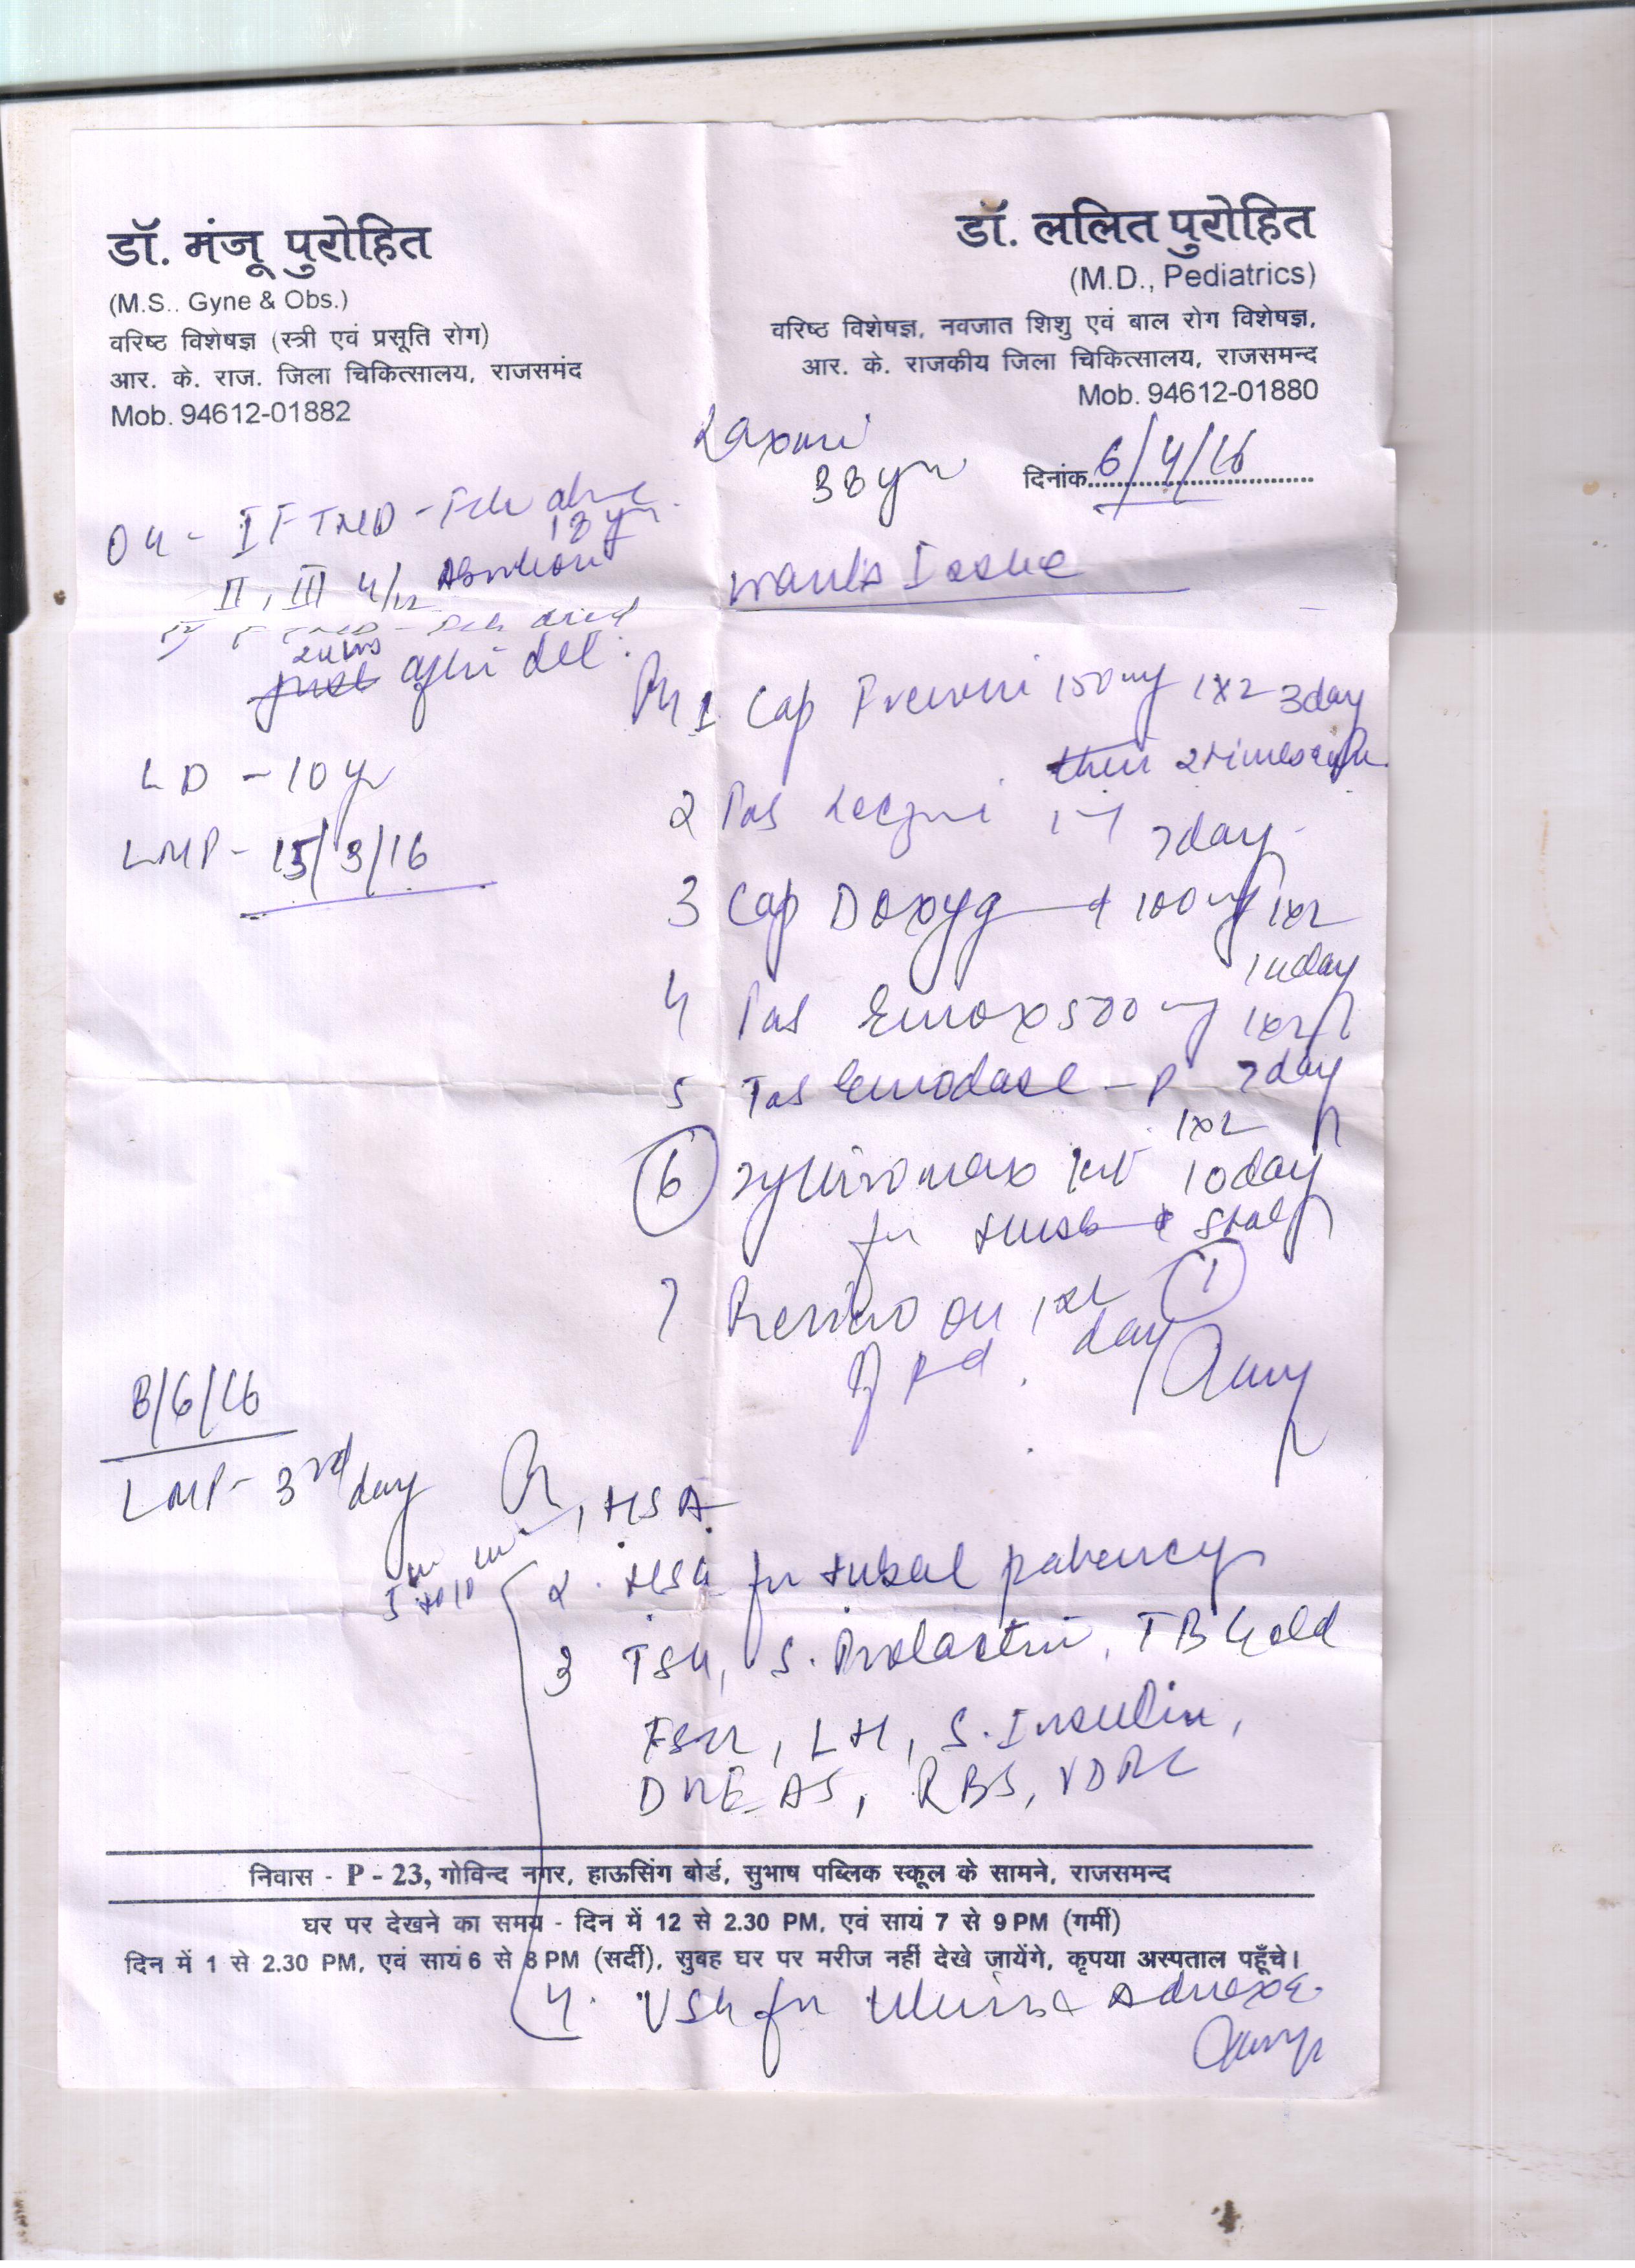 डॉ. मंजू पुरोहित
(M.S.. Gyne & Obs.)
वरिष्ठ विशेषज्ञ (स्त्री एवं प्रसूति रोग)
आर. के. राज. जिला चिकित्सालय, राजसमंद
Mob. 94612-01882
डॉ. ललित पुरोहित
(M.D., Pediatrics)
वरिष्ठ विशेषज्ञ, नवजात शिशु एवं बाल रोग विशेषज्ञ,
आर. के. राजकीय जिला चिकित्सालय, राजसमन्द
Mob. 94612-01880
Laxmi
38 yr
दिनांक 6/4/16
OH - I FTND - Fch alive
18 yr
II, III 4/12 Abortion
IV FTND - Fch died
after del.
LD - 10 yr
LMP - 15/3/16
wants Issue
1 Cap 150 mg 1x2 3day
then 2 times
2 Tab
7day
3 Cap Doxy 100 mg 1x2
14day
4 Tab 500 mg 1x2
5 Tab - P 7day
1x2
6 Kit 10day
for Husb
7 Review on 1st day
of
8/6/16
LMP - 3rd day
1, HSA
2. HSG for tubal patency
3 TSH, S. Prolactin, TB Gold
FSH, LH, S. Insulin,
DHEAS, RBS, VDRL
निवास - P - 23, गोविन्द नगर, हाऊसिंग बोर्ड, सुभाष पब्लिक स्कूल के सामने, राजसमन्द
घर पर देखने का समय - दिन में 12 से 2.30 PM, एवं सायं 7 से 9 PM (गर्मी)
दिन में 1 से 2.30 PM, एवं सायं 6 से 8 PM (सर्दी), सुबह घर पर मरीज नहीं देखे जायेंगे, कृपया अस्पताल पहूँचे।
4. USG for Uterus & Adnexae